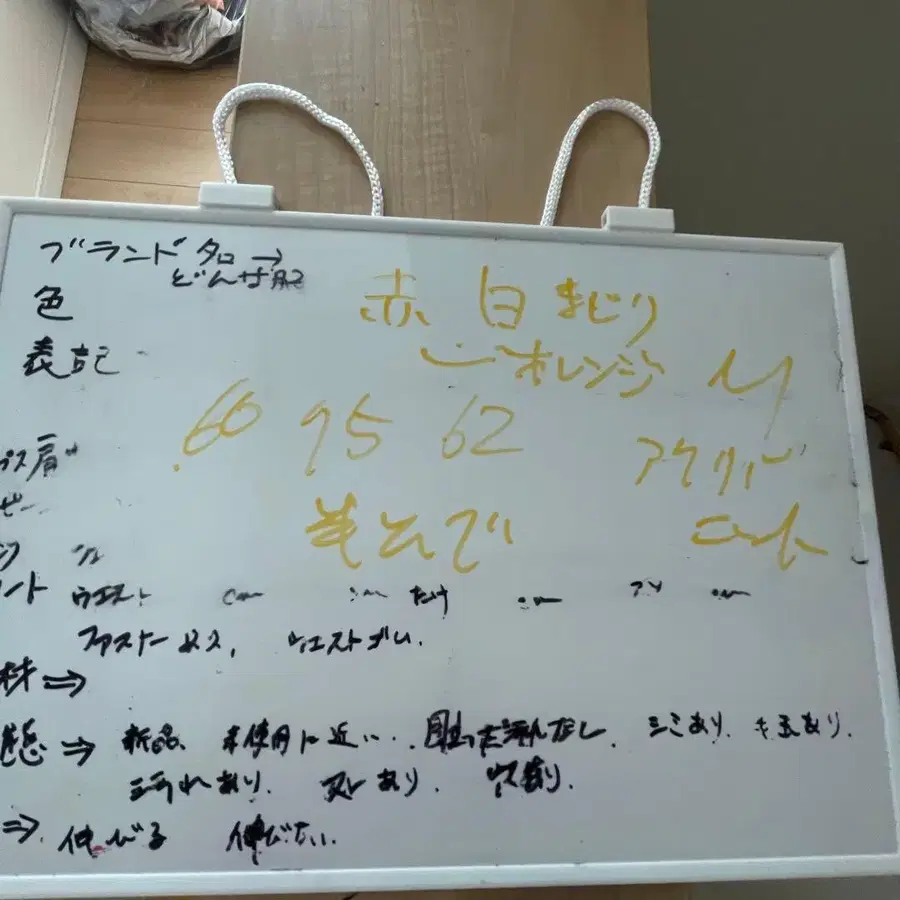 ブランド タロ→
どんな服
色 赤 白 まじり
オレンジ M
表記
60 95 62
肩 アクリル
半そで
ント ウエスト cm cm たけ cm cm
ファスナー ウエストゴム.
材⇒
態⇒ 新品、未使用に近い. 目立った汚れなし. シミあり. キズあり.
汚れあり. あり. あり.
⇒. 伸びる 伸びない.